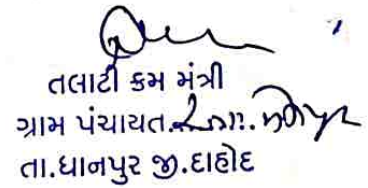 તલાટી કમ મંત્રી
ગ્રામ પંચાયત.
તા.ધાનપુર જી.દાહોદ